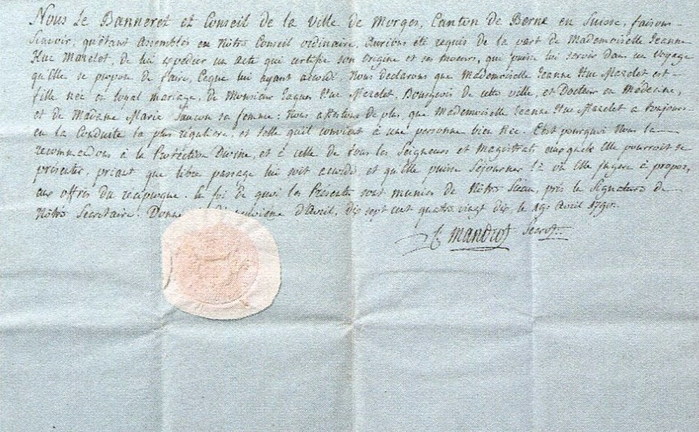 Nous Le Banneret et Conseil de la Ville de Morges, Canton de Berne en Suisse, faisons
Scavoir, qu'étant assemblés en Nôtre Conseil ordinaire, Aurions été requis de la part de Mademoiselle Jeanne
Hue Mazelet, de lui expedier un acte qui certifie son Origine et ses moeurs, qui puisse lui servir dans un voyage
qu'elle se propose de faire, Ceque lui ayant acordé Nous Declarons que Mademoiselle Jeanne Hue Mazelet est
fille née en loyal mariage, de Monsieur Jaques Hue Mazelet, Bourgeois de cette ville, et Docteur en Medecine,
et de Madame Marie sa femme: Nous attestons de plus, que Mademoiselle Jeanne Hue Mazelet a toujours
eu la Conduite la plus reguliere, et telle qu'il convient à une personne bien née. C'est pourquoi Nous la
recommandons à la Protection Divine, et à celle de tous les Seigneurs et Magistrats auxquels elle pourroit se
présenter, priant que libre passage lui soit acordé, et qu'elle puisse Séjourner là où elle jugera à propos,
aux offres du réciproque. En foi de quoi les Presentes sont munies de Nôtre Sceau, près la Signature de
Nôtre Secretaire. Donné d'Avril, dix sept cent quatre vingt dix, le Avril 1790.
Mandrot Secret.